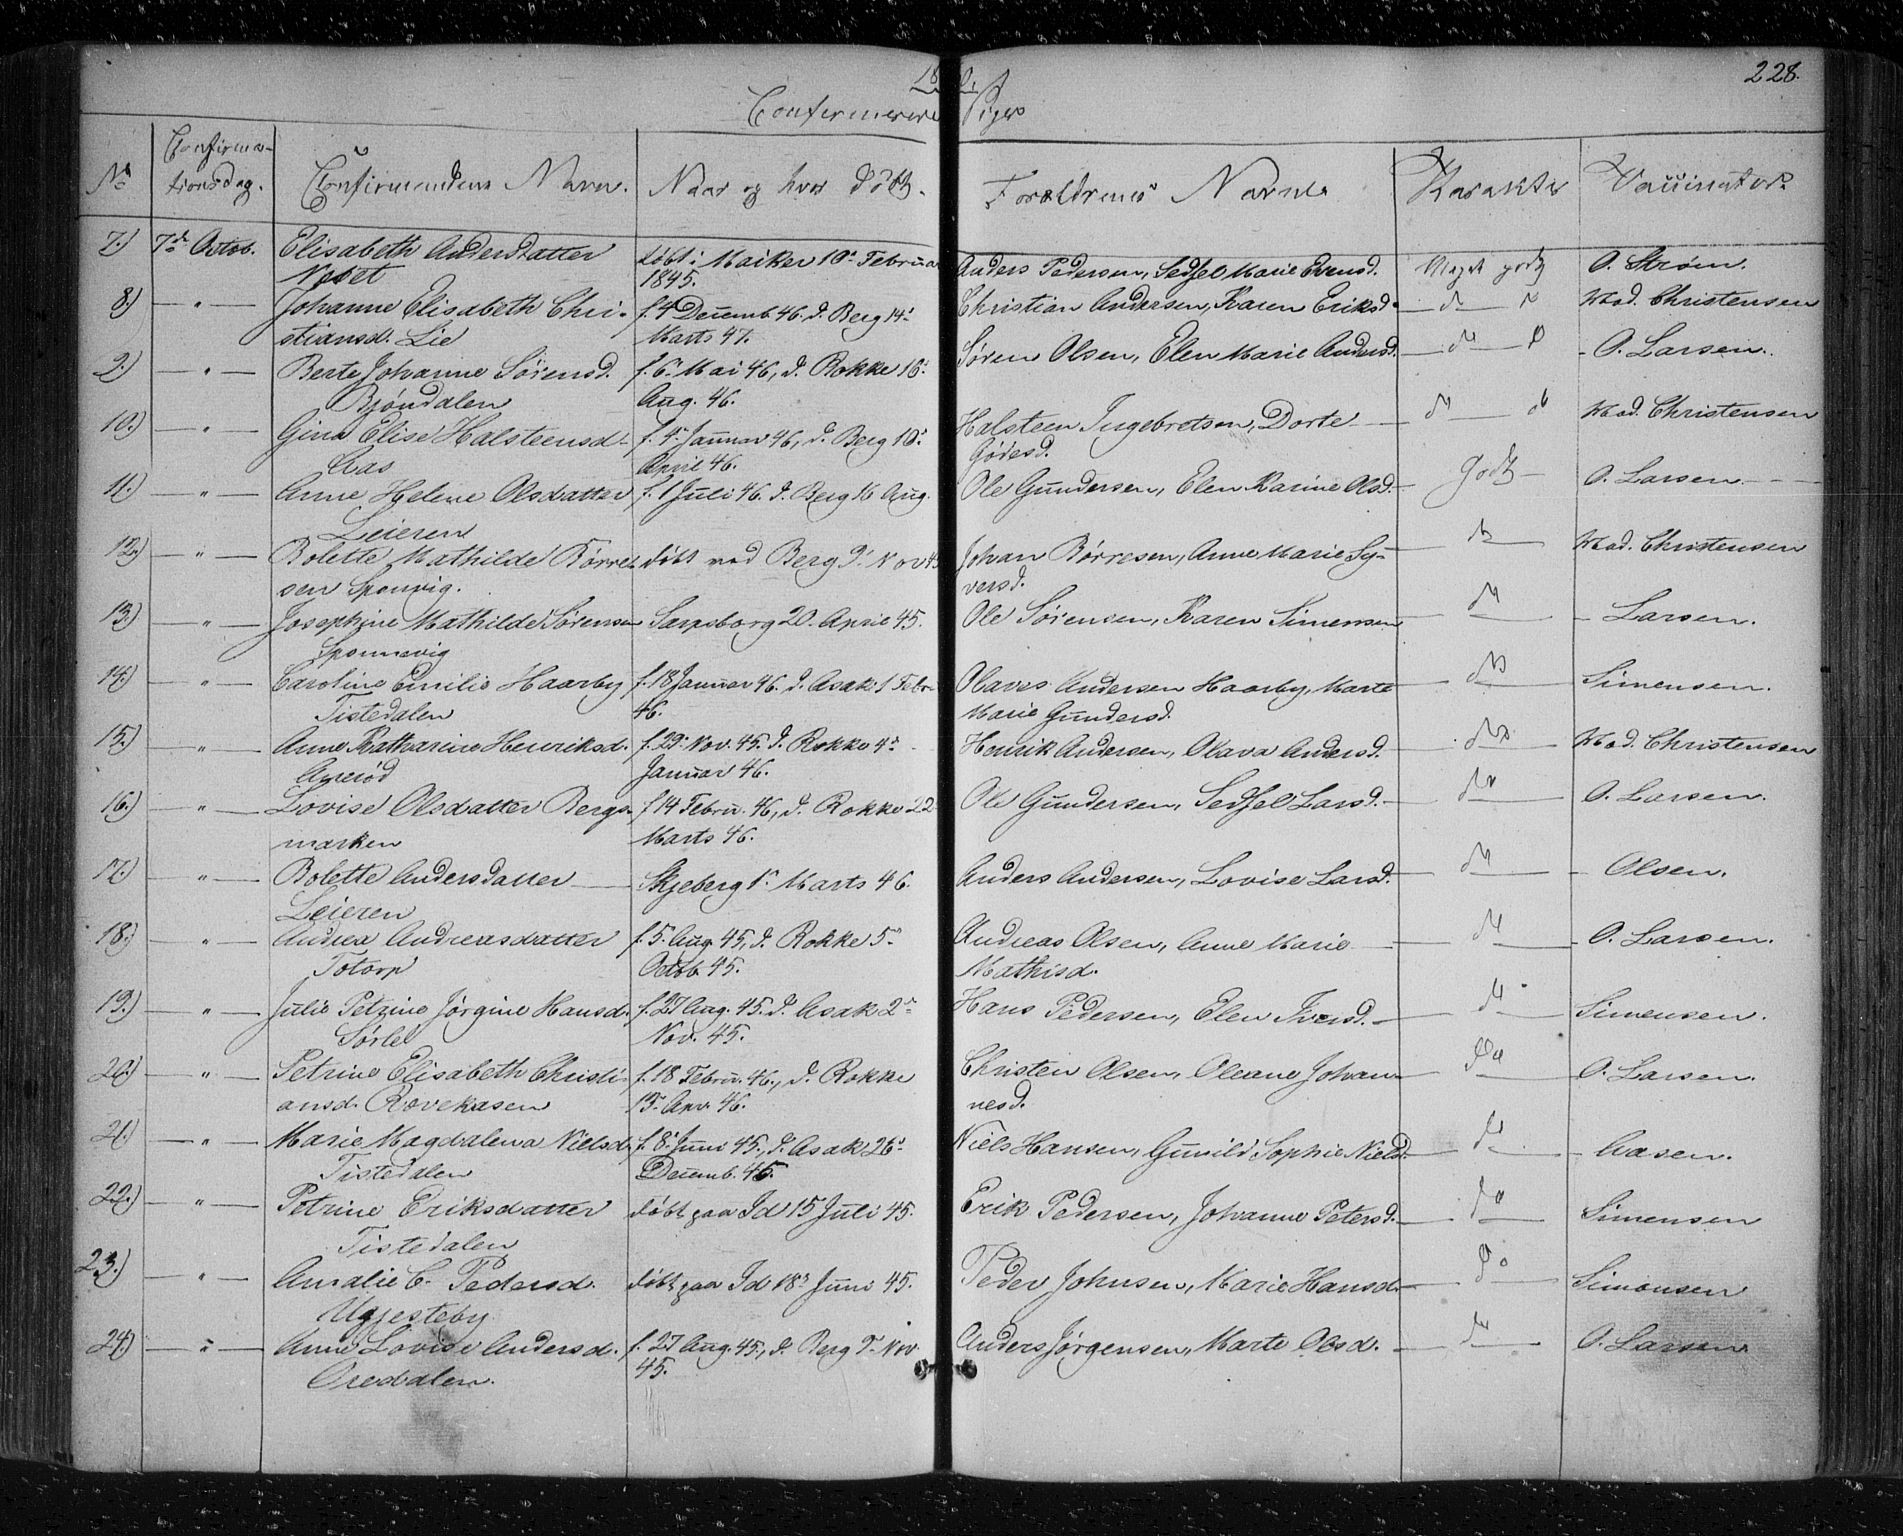 228.
Confirmerede Piger
No Confirmationsdag. Confirmandens Navn. Naar og hvor døbt. Forældrenes Navne Karakter Vaccinator
7.) 7de Octob. Elisabeth Andersdatter døbt i 10de Februar Anders Pedersen, Sedsel Marie Evensd. Meget godt O. Strøm.
1845.
8.) — " — Johanne Elisabeth Chri- f. 4 Decemb. 46. d. Berg 14de Christian Andersen, Karen Eriksd. Mad. Christensen
stiansd. Lie Marts 47.
9.) — " — Berte Johanne Sörensd. f. 6te Mai 46, d. Rokke 16de Søren Olsen, Elen Marie Andersd. O. Larsen.
Bjöndalen Aug. 46.
10.) — " — Gina Elise Halsteensd. f. 4de Januar 46, d. Berg 10de Halsteen Ingebretsen, Dorte Mad. Christensen
Aas April 46. Gödesd.
11.) — " — Anne Helene Olsdatter f. 1 Juli 46. d. Berg 16 Aug. Ole Gundersen, Elen Karine Olsd. Godt O. Larsen
Leieren
12.) — " — Bolette Mathilde Børre- døbt ved Berg 9de Nov 45 Johan Børresen, Anne Marie Sy- Mad. Christensen
sen Sponvig. versd.
13.) — " — Josephine Mathilde Sørensen Sarpsborg 20. April 45. Ole Sørensen, Karen Simensen Larsen.
Sponnevig
14.) — " — Caroline Emilie Haarby f. 18 Januar 46. d. Asak 1 Febr. Olaves Andersen Haarby, Marte Simensen.
Tistedalen 46. Marie Gundersd.
15.) — " — Anne Katharine Henriksd. f. 29de Nov. 45. d. Rokke 4de Henrik Andersen, Olava Andersd. Mad. Christensen
Januar 46.
16.) — " — Lovise Olsdatter Bergs- f 14 Febru. 46, d. Rokke 22 Ole Gundersen, Sedsel Larsd. O. Larsen.
marken Marts 46.
17.) — " — Bolette Andersdatter Skjeberg 1de Marts 46. Anders Andersen, Lovise Larsd. Olsen.
Leieren
18.) — " — Andrea Andreasdatter f. 5. Aug. 45, d. Rokke 5de Andreas Olsen, Anne Marie O. Larsen.
Totorp Octob. 45. Mathisd.
19.) — " — Julie Petrine Jørgine Hansd. f. 27 Aug. 45. d. Asak 2de Hans Pedersen, Elen Iversd. Simensen.
Sørlie Nov. 45.
20.) — " — Petrine Elisabeth Christi- f. 18 Febru. 46., d. Rokke Christen Olsen, Oleane Johan- O. Larsen.
ansd. Rovekasen 13. Apr. 46. nesd.
21.) — " — Marie Magdalena Nielsd. f. 8de Juni 45., d. Asak 26de Niels Hansen, Gunild Sophie Nielsd. Aasen.
Tistedalen Decemb. 45.
22.) — " — Petrine Eriksdatter døbt paa Id 15 Juli 45. Erik Pedersen, Johanne Petersd. Simensen
Tistedalen
23.) — " — Amalie C. Pedersd. døbt paa Id 18de Juni 45. Peder Johnsen, Marie Hansd. Simonsen
Ugjesteby
24.) — " — Anne Lovise Andersd. f. 27 Aug. 45., d. Berg 9de Nov. Anders Jørgensen, Marte Olsd. O. Larsen
Oreddalen. 45.